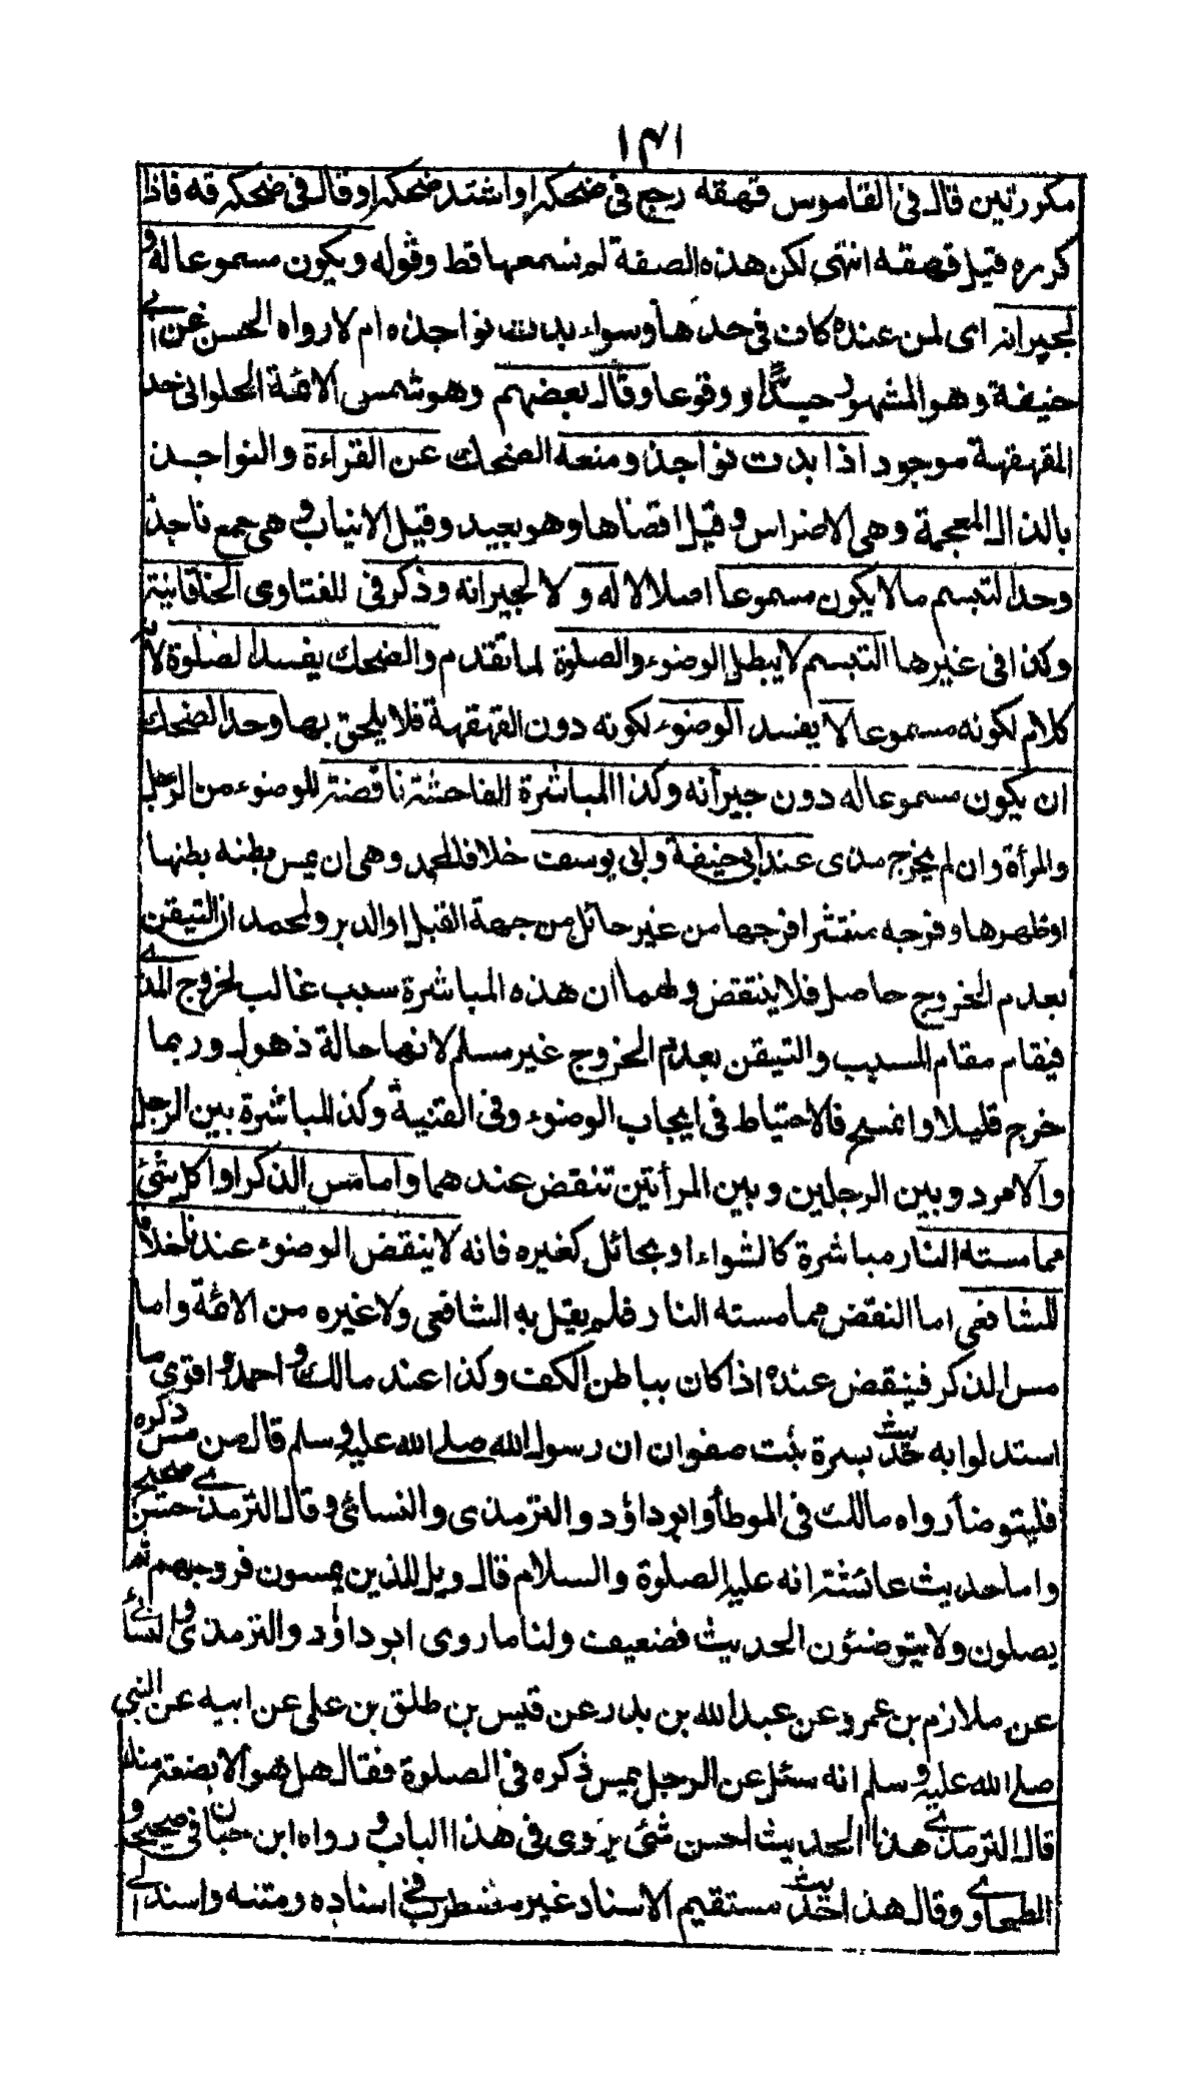 ١٤١
مكررتين قال فى القاموس قهقه رجع فى ضحكه او اشتد ضحكه او قال فى ضحكه قه فاذا
كرره قيل قهقه انتهى لكن هذه الصفة لم نسمعها قط وقوله ويكون مسموعا له و
لجيرانه اى لمن عنده كانت فى حدها وسواء بدت نواجذه ام لا رواه الحسن عن ابى
حنيفة وهو المشهور حيدا ووقوعا وقال بعضهم وهو شمس الائمة الحلوانى حد
القهقهة موجود اذا بدت نواجذ ومنعه الضحك عن القراءة والنواجذ
بالذال المعجمة وهى الاضراس وقيل اقصاها وهو بعيد وقيل الانياب وهى جمع ناجذ
وحد التبسم ما لا يكون مسموعا اصلا لا له ولا لجيرانه وذكر فى الفتاوى الخاقانية
وكذا فى غيرها التبسم لا يبطل الوضوء والصلوة لما تقدم والضحك يفسد الصلوة لانه
كلام لكونه مسموعا لا يفسد الوضوء لكونه دون القهقهة فلا يلحق بها وحد الضحك
ان يكون مسموعا له دون جيرانه وكذا المباشرة الفاحشة ناقضة للوضوء من الرجل
والمرأة وان لم يخرج مذى عند ابى حنيفة وابى يوسف خلافا لمحمد وهى ان يمس بطنه بطنها
او ظهرها وفرجه منتشرا فرجها من غير حائل من جهة القبل او الدبر ولمحمد ان التيقن
بعدم الخروج حاصل فلا ينتقض ولهما ان هذه المباشرة سبب غالب لخروج المذى
فيقام مقام السبب والتيقن بعدم الخروج غير مسلم لانها حالة ذهول وربما
خرج قليلا وانمسح فالاحتياط فى ايجاب الوضوء وفى القنية وكذا المباشرة بين الرجل
والامرد وبين الرجلين وبين المرأتين تنقض عندهما واما مس الذكر او اكل شئ
مما مسته النار مباشرة كالشواء او بحائل كغيره فانه لا ينقض الوضوء عندنا خلافا
للشافعى اما النقض مما مسته النار فلم يقل به الشافعى ولا غيره من الائمة واما
مس الذكر فينقض عنده اذا كان بباطن الكف وكذا عند مالك واحمد واقوى ما
استدلوا به حديث بسرة بنت صفوان ان رسول الله صلى الله عليه وسلم قال من مس ذكره
فليتوضأ رواه مالك فى الموطأ وابو داؤد والترمذى والنسائى وقال الترمذى حسن صحيح
واما حديث عائشة انه عليه الصلوة والسلام قال ويل للذين يمسون فروجهم ثم
يصلون ولا يتوضئون الحديث فضعيف ولنا ما روى ابو داؤد والترمذى والنسائى
عن ملازم بن عمرو عن عبد الله بن بدر عن قيس بن طلق بن على عن ابيه عن النبى
صلى الله عليه وسلم انه سئل عن الرجل يمس ذكره فى الصلوة فقال هل هو الا بضعة منك
قال الترمذى هذا الحديث احسن شئ يروى فى هذا الباب ورواه ابن حبان فى صحيحه و
الطحاوى وقال هذا حديث مستقيم الاسناد غير مضطرب فى اسناده ومتنه واسند الى